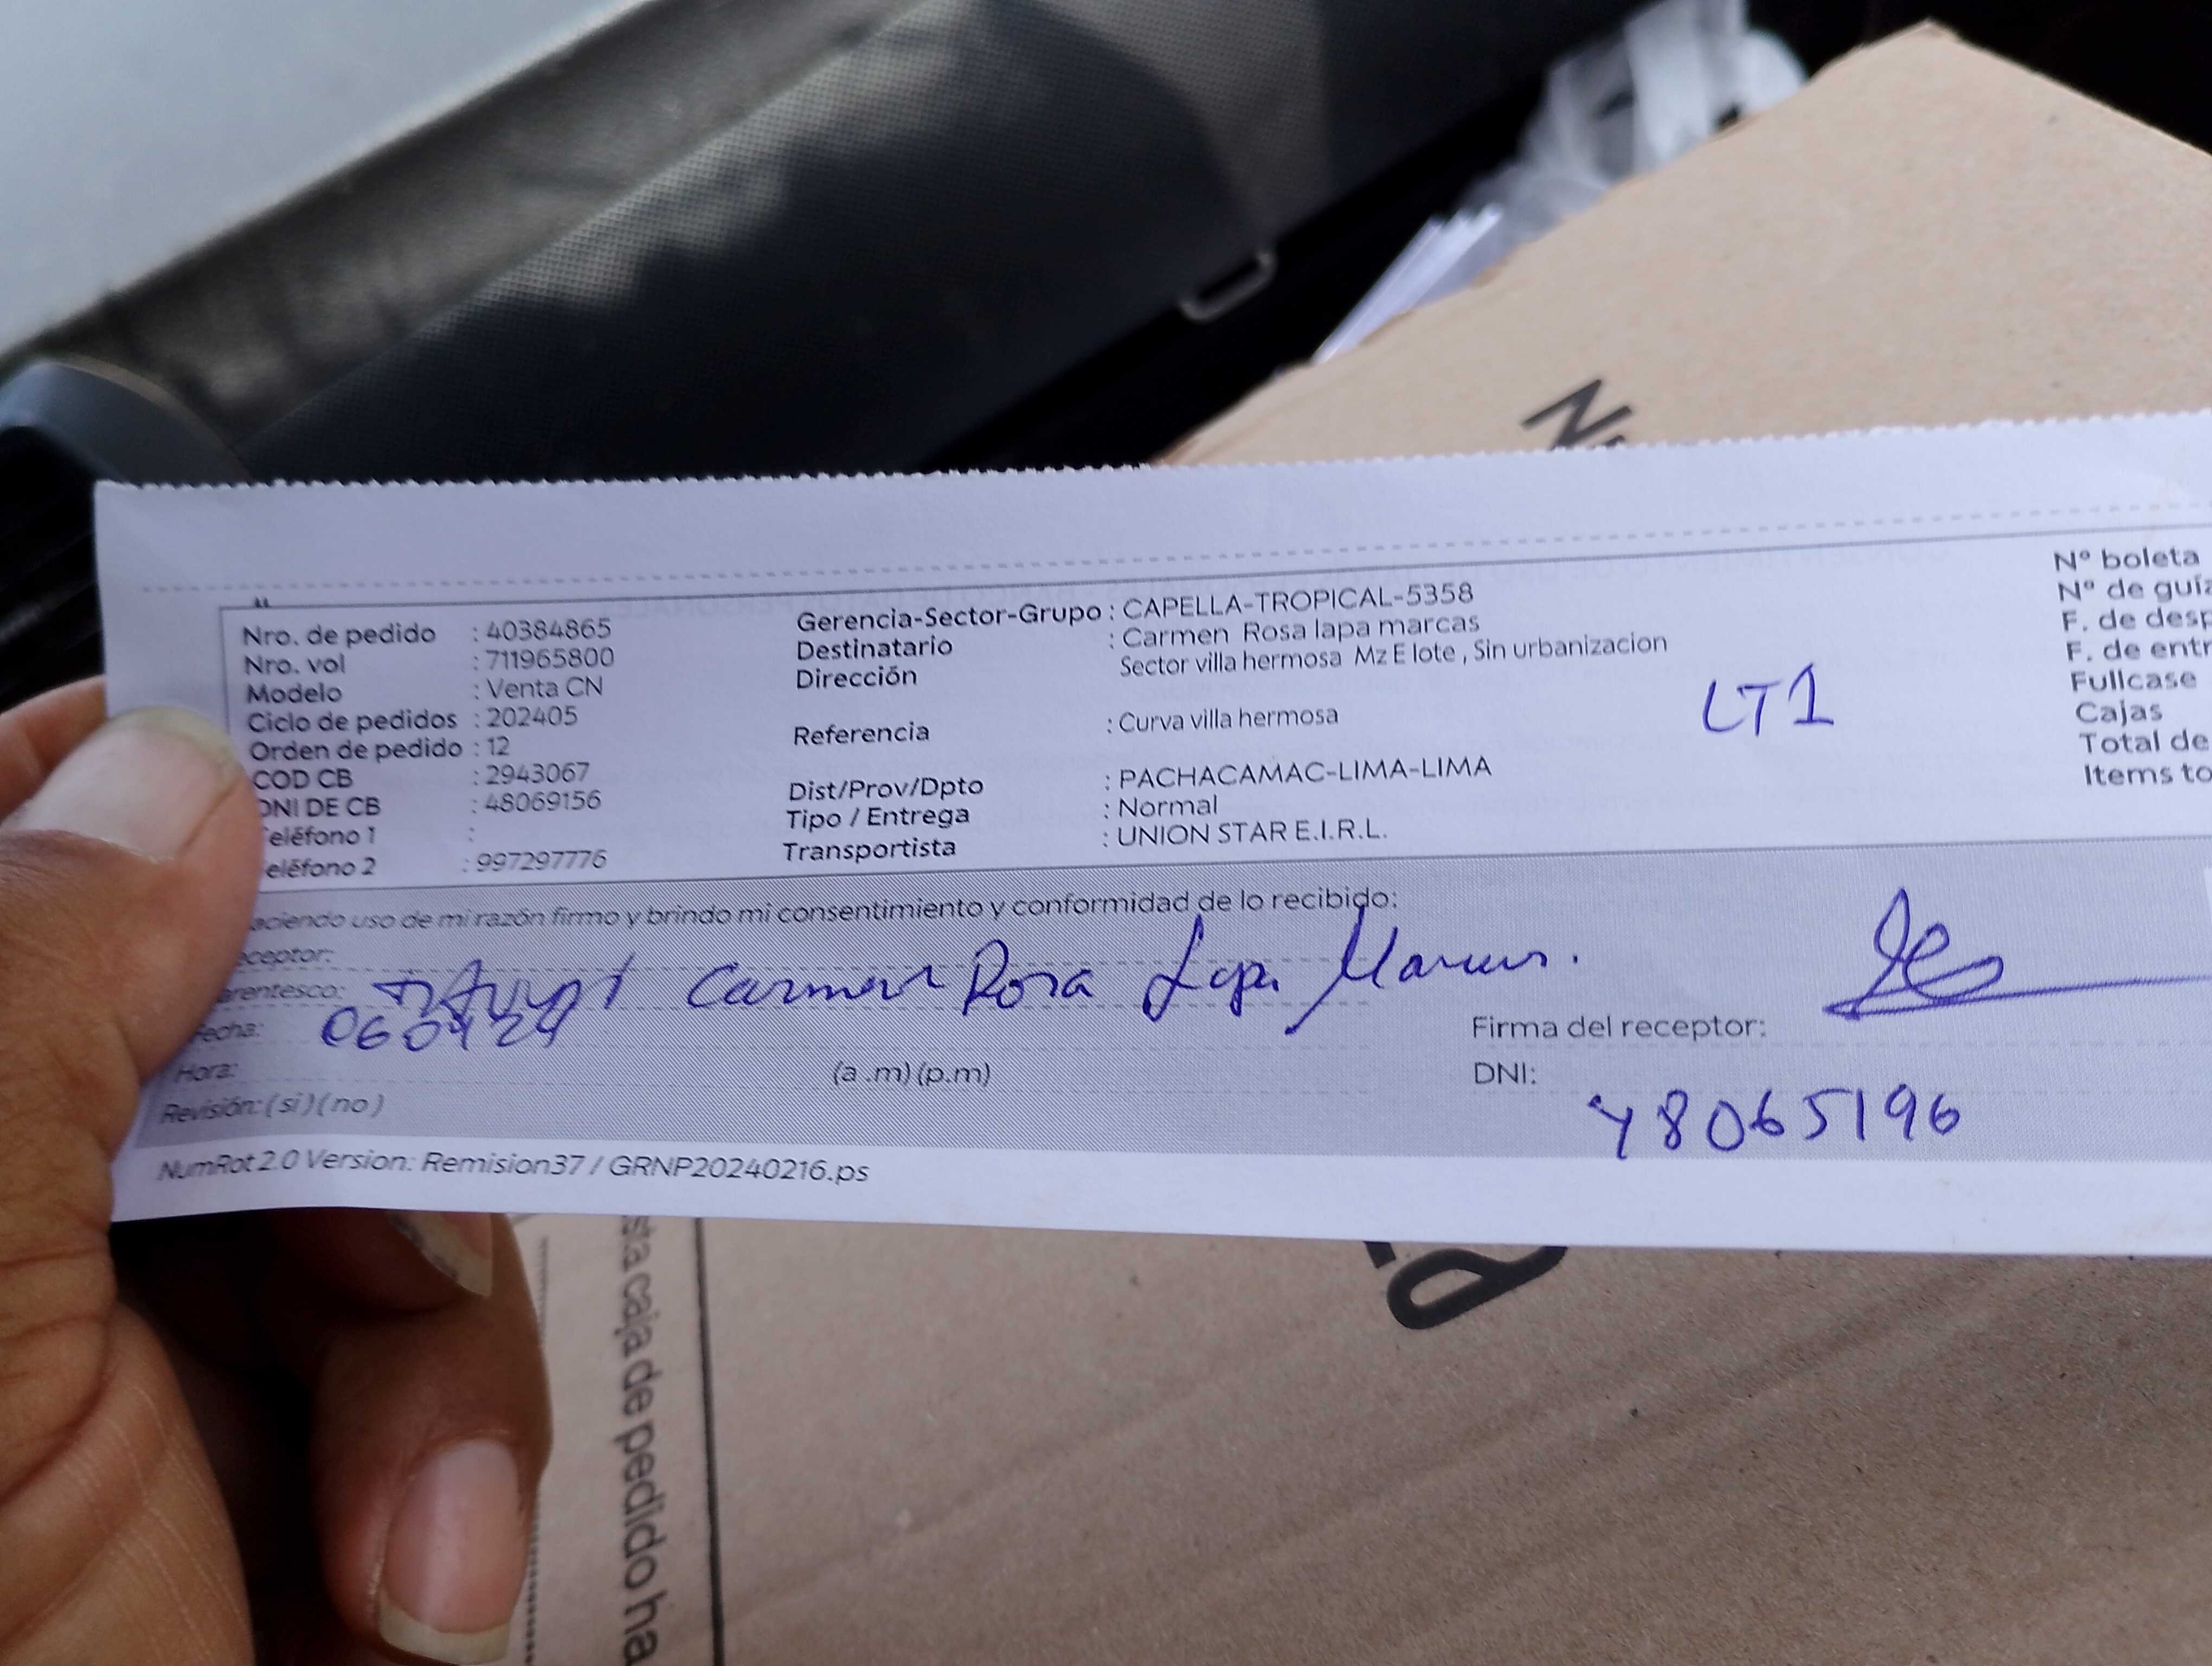 Nro. de pedido : 40384865
Nro. vol : 711965800
Modelo : Venta CN
Ciclo de pedidos : 202405
Orden de pedido : 12
COD CB : 2943067
DNI DE CB : 48069156
eléfono 1 :
eléfono 2 : 997297776
Gerencia-Sector-Grupo : CAPELLA-TROPICAL-5358
Destinatario : Carmen Rosa lapa marcas
Dirección Sector villa hermosa Mz E lote , Sin urbanizacion
LT1
Referencia : Curva villa hermosa
Dist/Prov/Dpto : PACHACAMAC-LIMA-LIMA
Tipo / Entrega : Normal
Transportista : UNION STAR E.I.R.L.
N° boleta
N° de guía
F. de desp
F. de entr
Fullcase
Cajas
Total de
Items to
aciendo uso de mi razón firmo y brindo mi consentimiento y conformidad de lo recibido:
eceptor:
arentesco: Carmen Rosa Lapa Marcas.
Fecha: 060424
Hora: (a .m) (p.m)
Revisión: (si) (no)
Firma del receptor:
DNI:
48065196
NumRot 2.0 Version: Remision37 / GRNP20240216.ps
sta caja de pedido ha